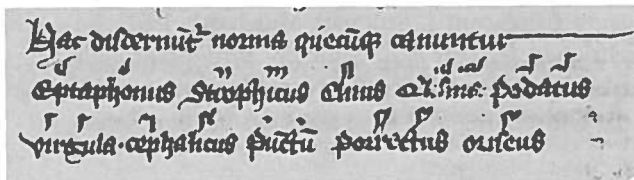 Hac discernu̅t᷑ norma quecu̅q̨ canuntur
Eptaphonus Strophicus Climus Podatus
virgula · cephalicus Pu̅ctu̅ Porrectus oriscus